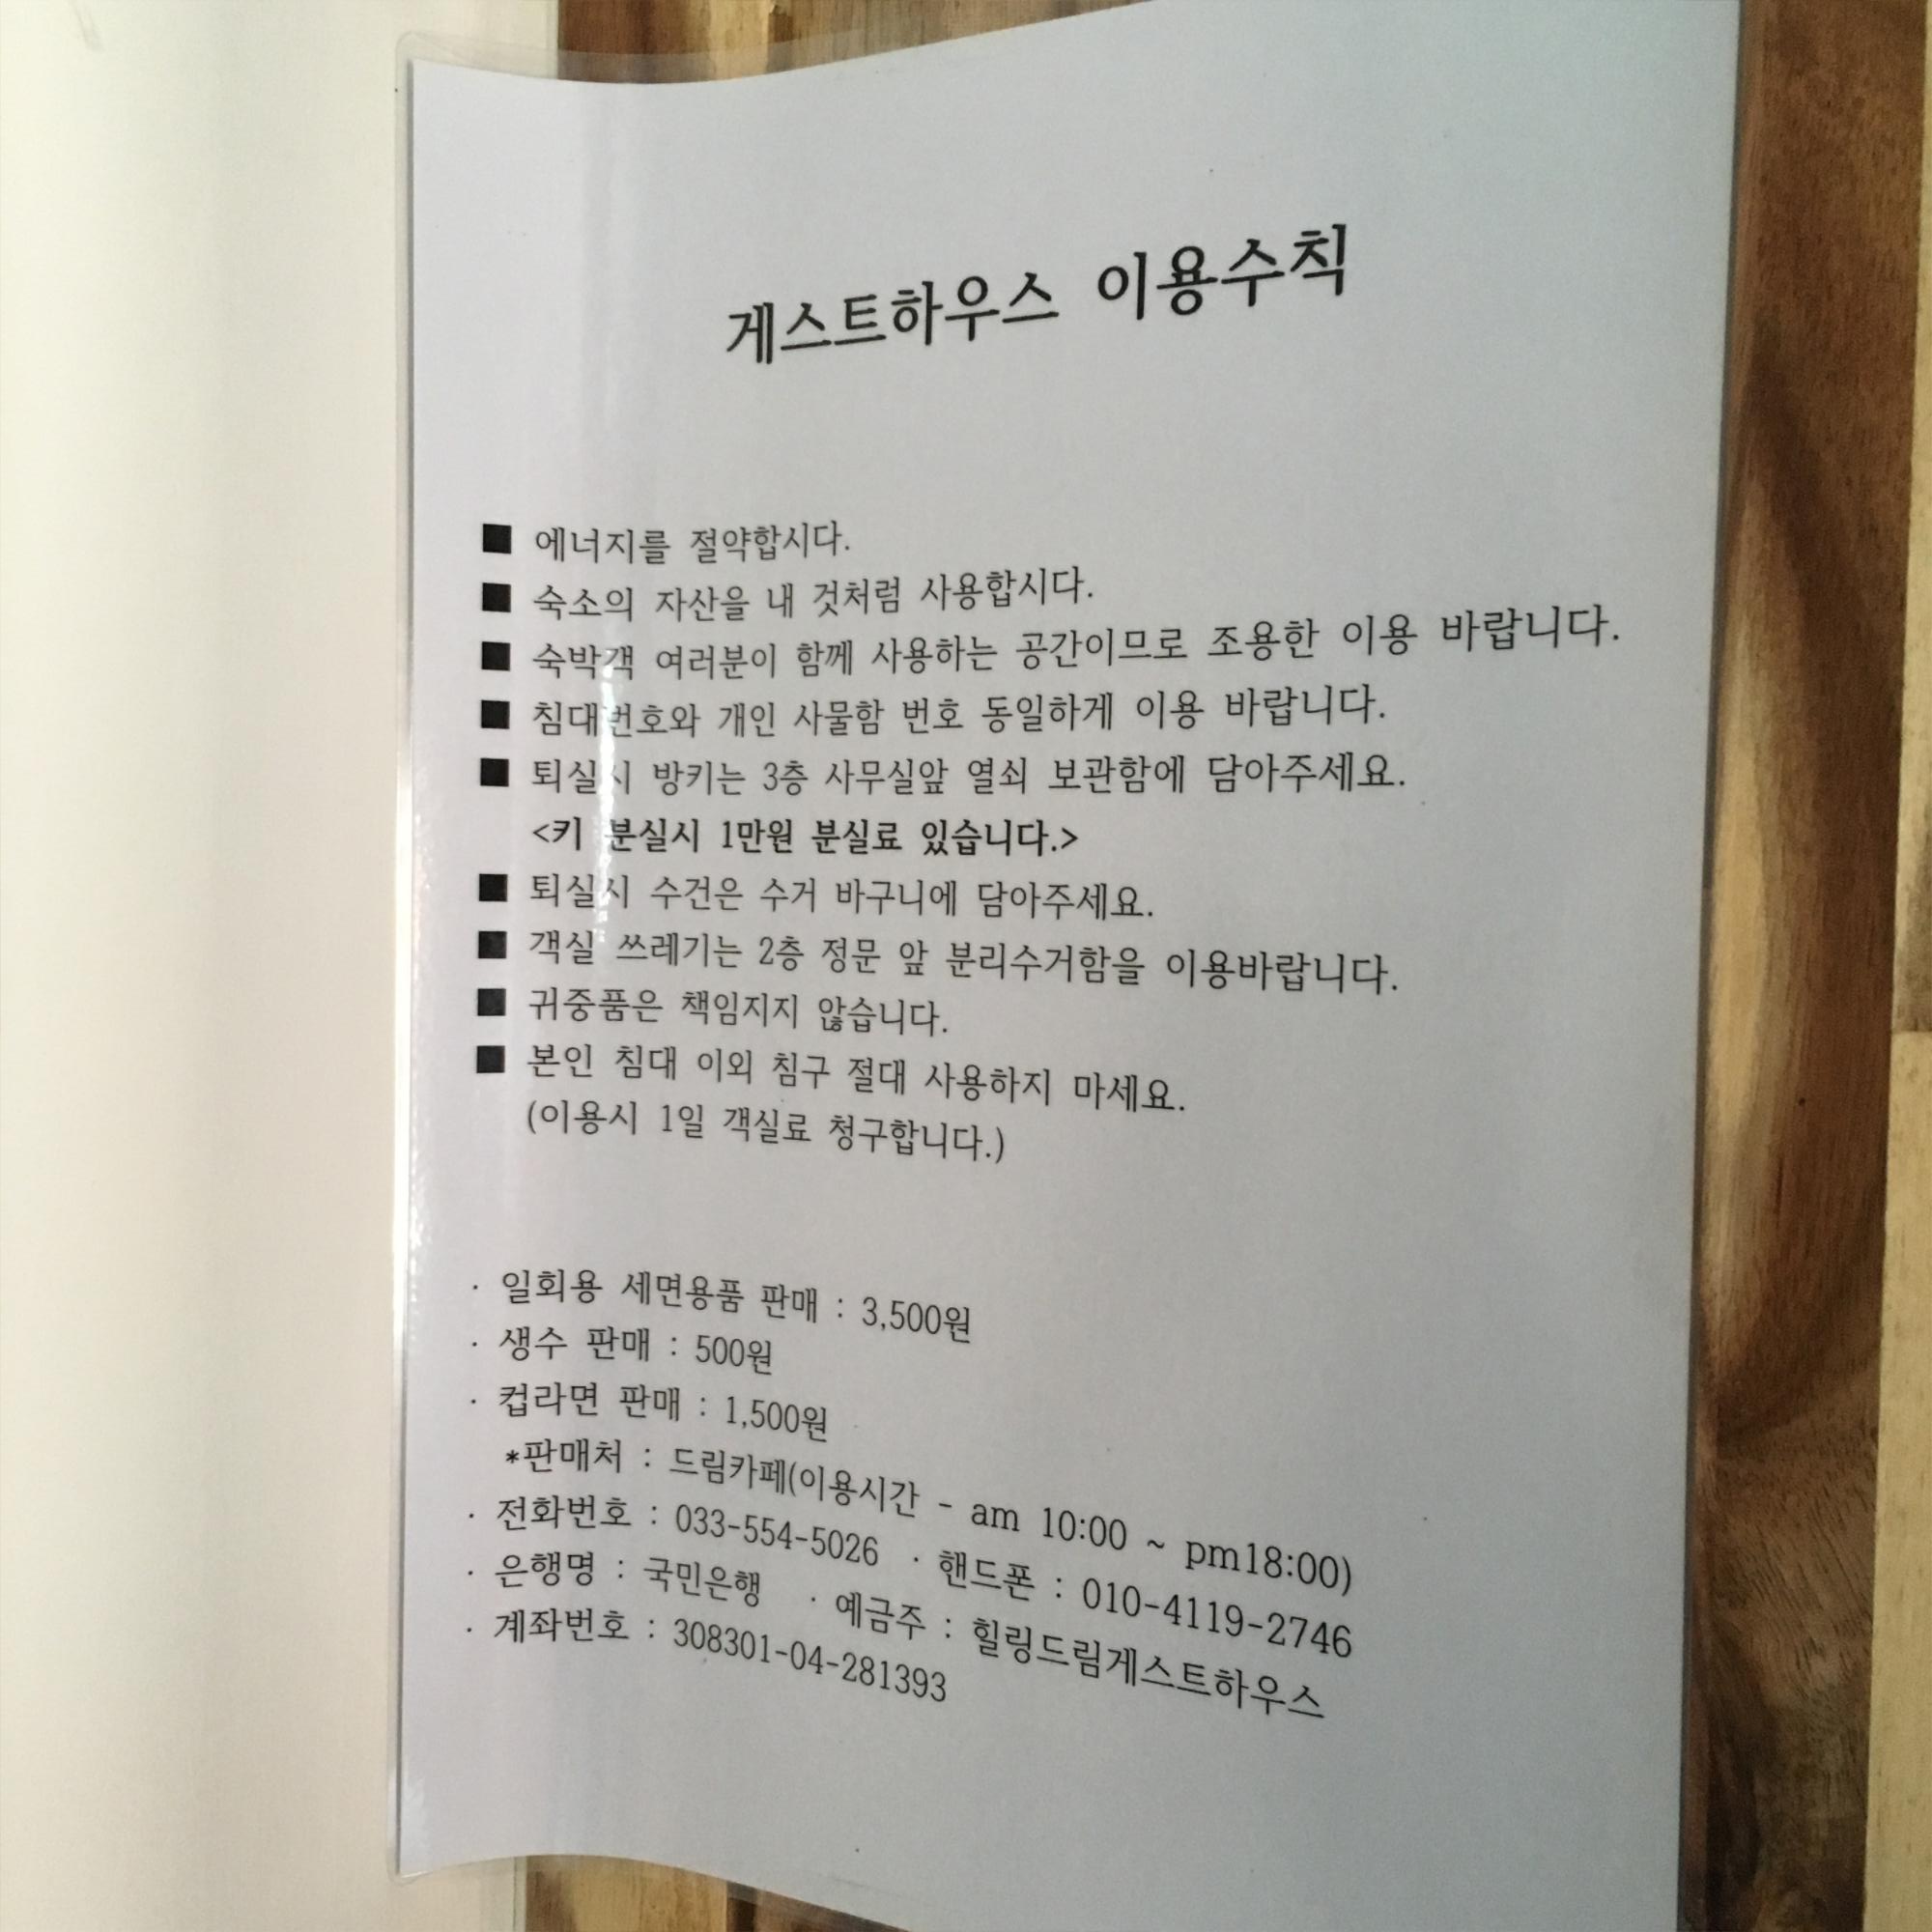 게스트하우스 이용수칙
■ 에너지를 절약합시다.
■ 숙소의 자산을 내 것처럼 사용합시다.
■ 숙박객 여러분이 함께 사용하는 공간이므로 조용한 이용 바랍니다.
■ 침대번호와 개인 사물함 번호 동일하게 이용 바랍니다.
■ 퇴실시 방키는 3층 사무실앞 열쇠 보관함에 담아주세요.
<키 분실시 1만원 분실료 있습니다.>
■ 퇴실시 수건은 수거 바구니에 담아주세요.
■ 객실 쓰레기는 2층 정문 앞 분리수거함을 이용바랍니다.
■ 귀중품은 책임지지 않습니다.
■ 본인 침대 이외 침구 절대 사용하지 마세요.
(이용시 1일 객실료 청구합니다.)
· 일회용 세면용품 판매 : 3,500원
· 생수 판매 : 500원
· 컵라면 판매 : 1,500원
*판매처 : 드림카페(이용시간 - am 10:00 ~ pm18:00)
· 전화번호 : 033-554-5026 · 핸드폰 : 010-4119-2746
· 은행명 : 국민은행 · 예금주 : 힐링드림게스트하우스
· 계좌번호 : 308301-04-281393